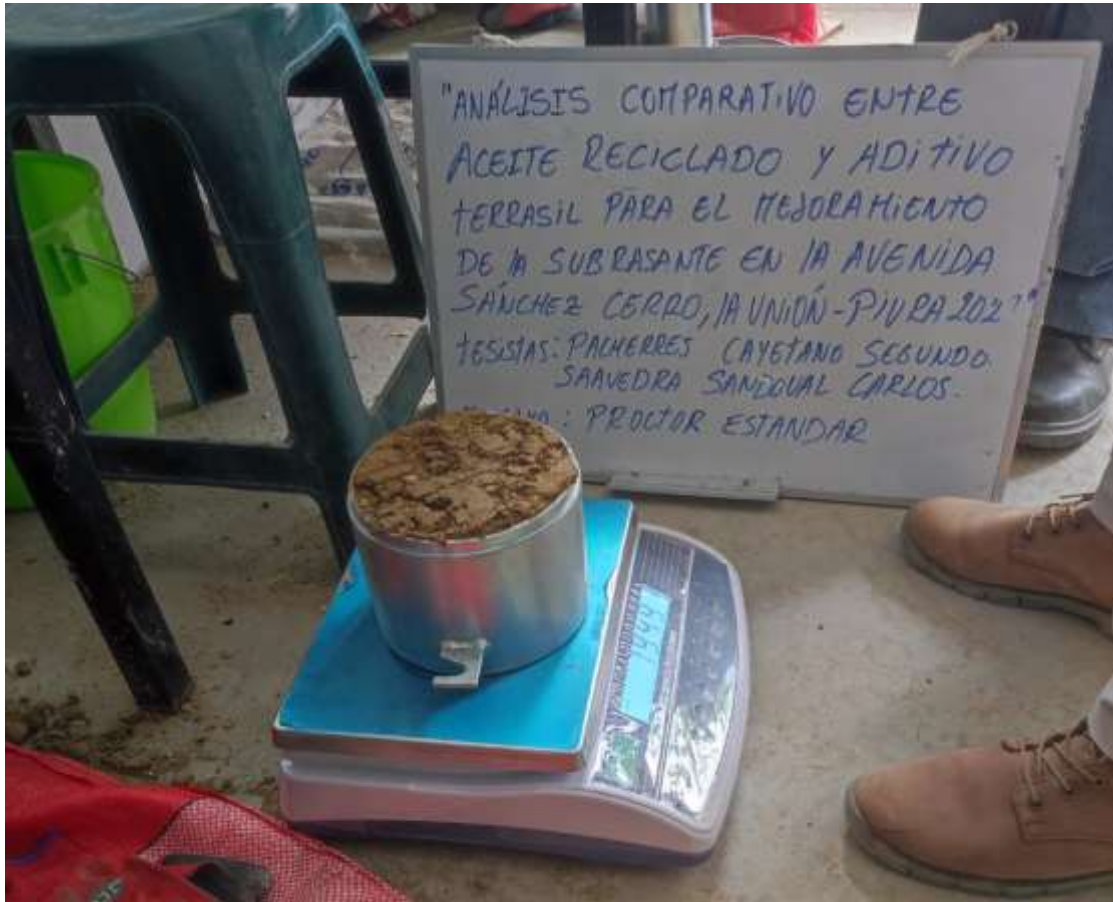 "ANÁLISIS COMPARATIVO ENTRE
ACEITE RECICLADO Y ADITIVO
TERRASIL PARA EL MEJORAMIENTO
DE LA SUBRASANTE EN LA AVENIDA
SÁNCHEZ CERRO, LA UNIÓN - PIURA
TESISTAS: PACHERRES CAYETANO SEGUNDO.
SAAVEDRA SANDOVAL CARLOS.
: PROCTOR ESTANDAR
1444